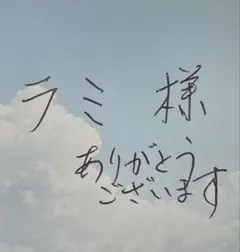 ラミ 様
ありがとう
ございます